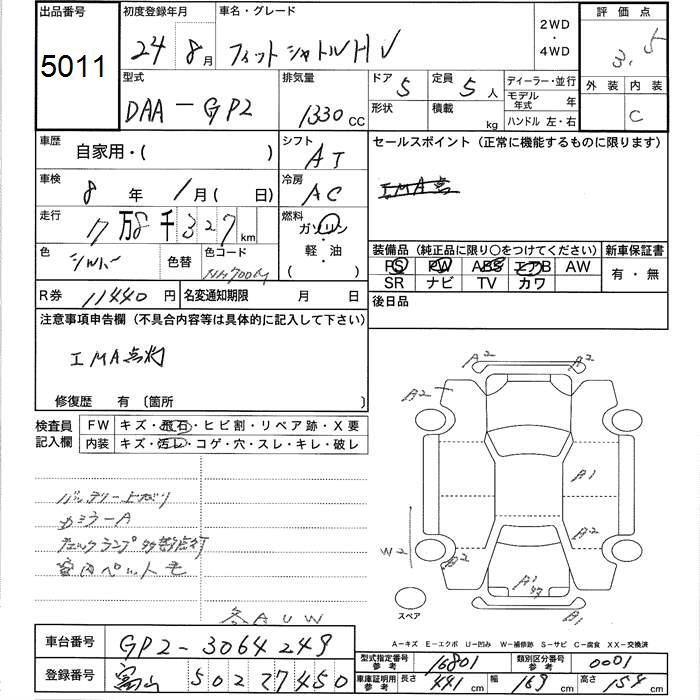 出品番号
5011
初度登録年月
24年8月
車名・グレード
フィットシャトルHV
2WD
・
4WD
評価点
3.5
外装 内装
C
型式
DAA-GP2
排気量
1330cc
ドア
5
形状
定員
5人
積載
kg
ディーラー・並行
モデル年式 年
ハンドル 左・右
車歴
自家用・( )
シフト
AT
セールスポイント（正常に機能するものに限ります）
車検
8年1月( 日)
冷房
AC
走行
万 千327km
燃料
ガソリン
・
軽・油
( )
色
シルバー
色替
色コード
NH700M
装備品（純正品に限り○をつけてください）
PS PW ABS エアB AW
SR ナビ TV カワ
新車保証書
有・無
R券
11440円
名変通知期限 月 日
後日品
注意事項申告欄（不具合内容等は具体的に記入して下さい）
IMA点灯
修復歴 有〔箇所
検査員
記入欄
FW キズ・飛石・ヒビ割・リペア跡・X要
内装 キズ・汚レ・コゲ・穴・スレ・キレ・破レ
バッテリー上がり
カミラーA
チェックランプ等点灯
室内ペット毛
各AUW
A2
A2
A2
A1
A2
W2
B2
A1
B1
スペア
A-キズ E-エクボ U-凹み W-補修跡 S-サビ C-腐食 XX-交換済
車台番号
GP2-3064249
登録番号
富山 50227450
型式指定番号
参考
16801
類別区分番号
参考
0001
車庫証明用
参考
長さ
441cm
幅
169cm
高さ
154cm